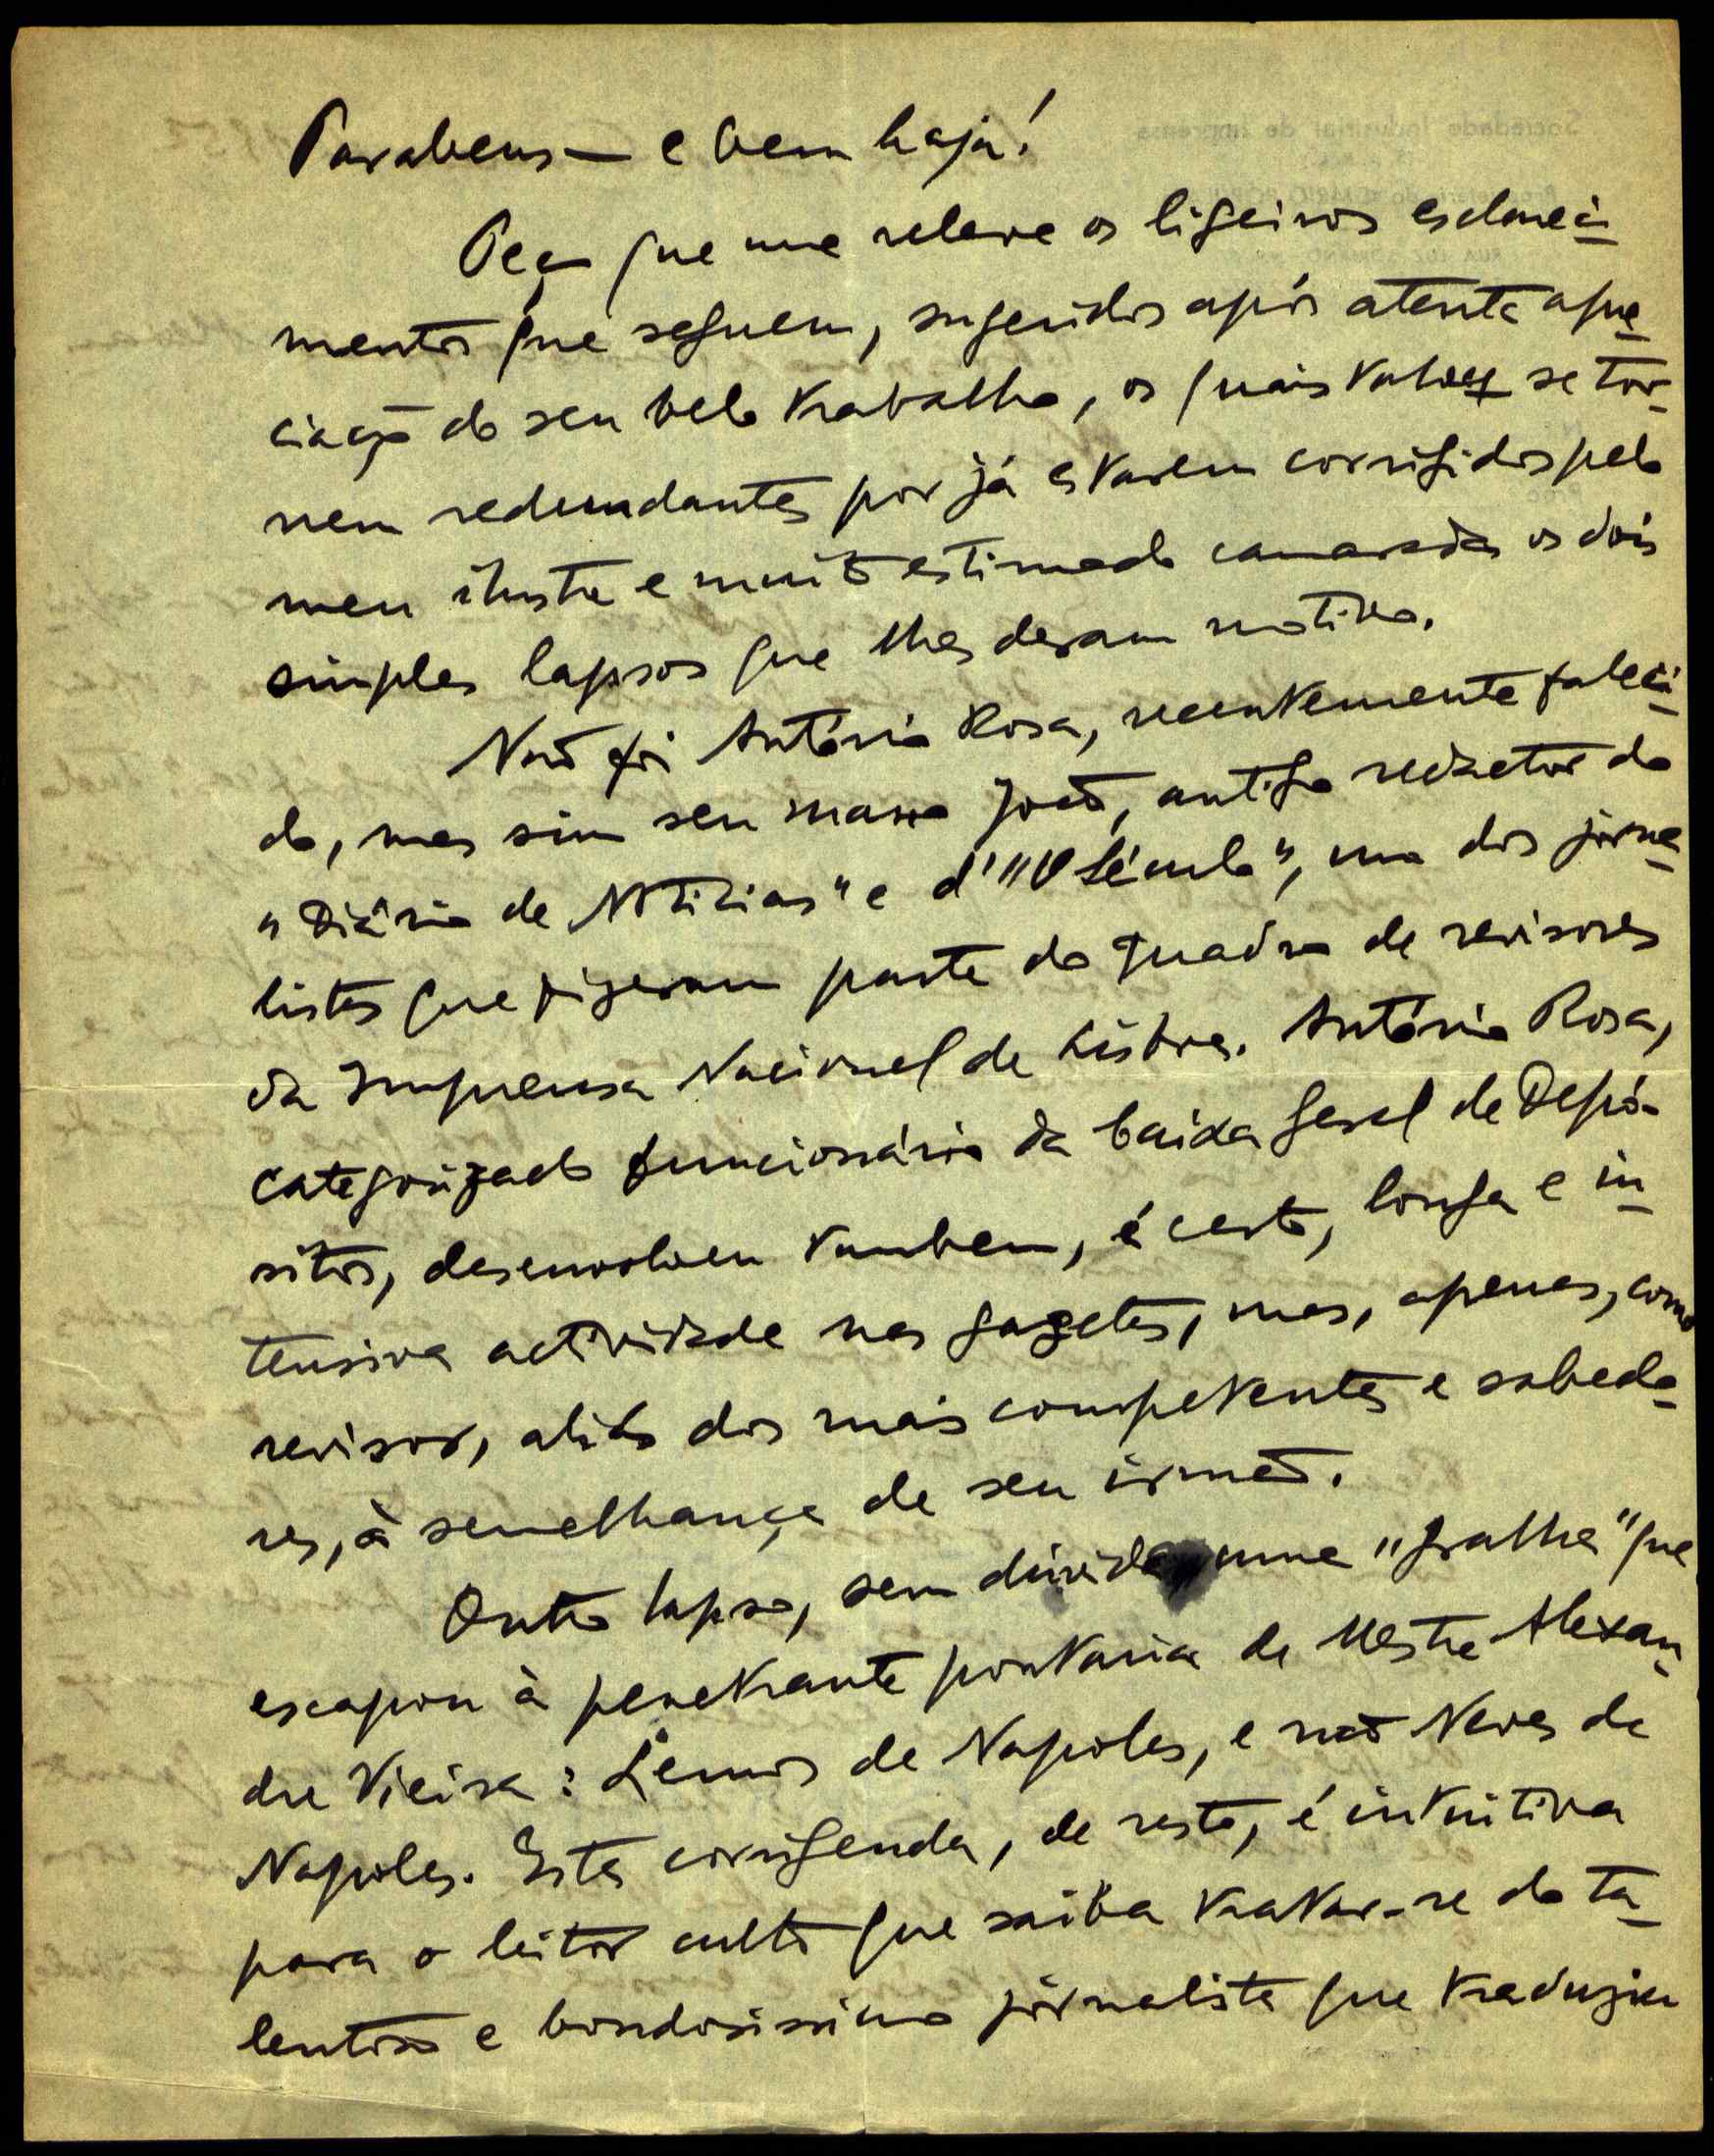 Parabens — e bem haja!
Peço que me releve os ligeiros esclareci-
mentos que seguem, sugeridos após atenta apre-
ciação do seu belo trabalho, os quais talvez se tor-
nem redundantes por já estarem corrigidos pelo
meu ilustre e muito estimado camarada os dois
simples lapsos que lhes deram motivo.
Não foi António Rosa, recentemente faleci-
do, mas sim seu mano João, antigo redactor do
"Diário de Notícias" e d'"O Século", um dos jorna-
listas que fizeram parte do quadro de revisores
da Imprensa Nacional de Lisboa. António Rosa,
categorizado funcionário da Caixa Geral de Depó-
sitos, desenvolveu tambem, é certo, longa e in-
tensiva actividade nas gazetas, mas, apenas, como
revisor, aliás dos mais competentes e sabedo-
res, à semelhança de seu irmão.
Outro lapso, sem dúvida uma "gralha" que
escapou à penetrante pontaria de Mestre Alexan-
dre Vieira: Lemos de Napoles, e não Neves de
Napoles. Esta corrigenda, de resto, é intuitiva
para o leitor culto que saiba tratar-se do ta-
lentoso e bondosíssimo jornalista que traduziu